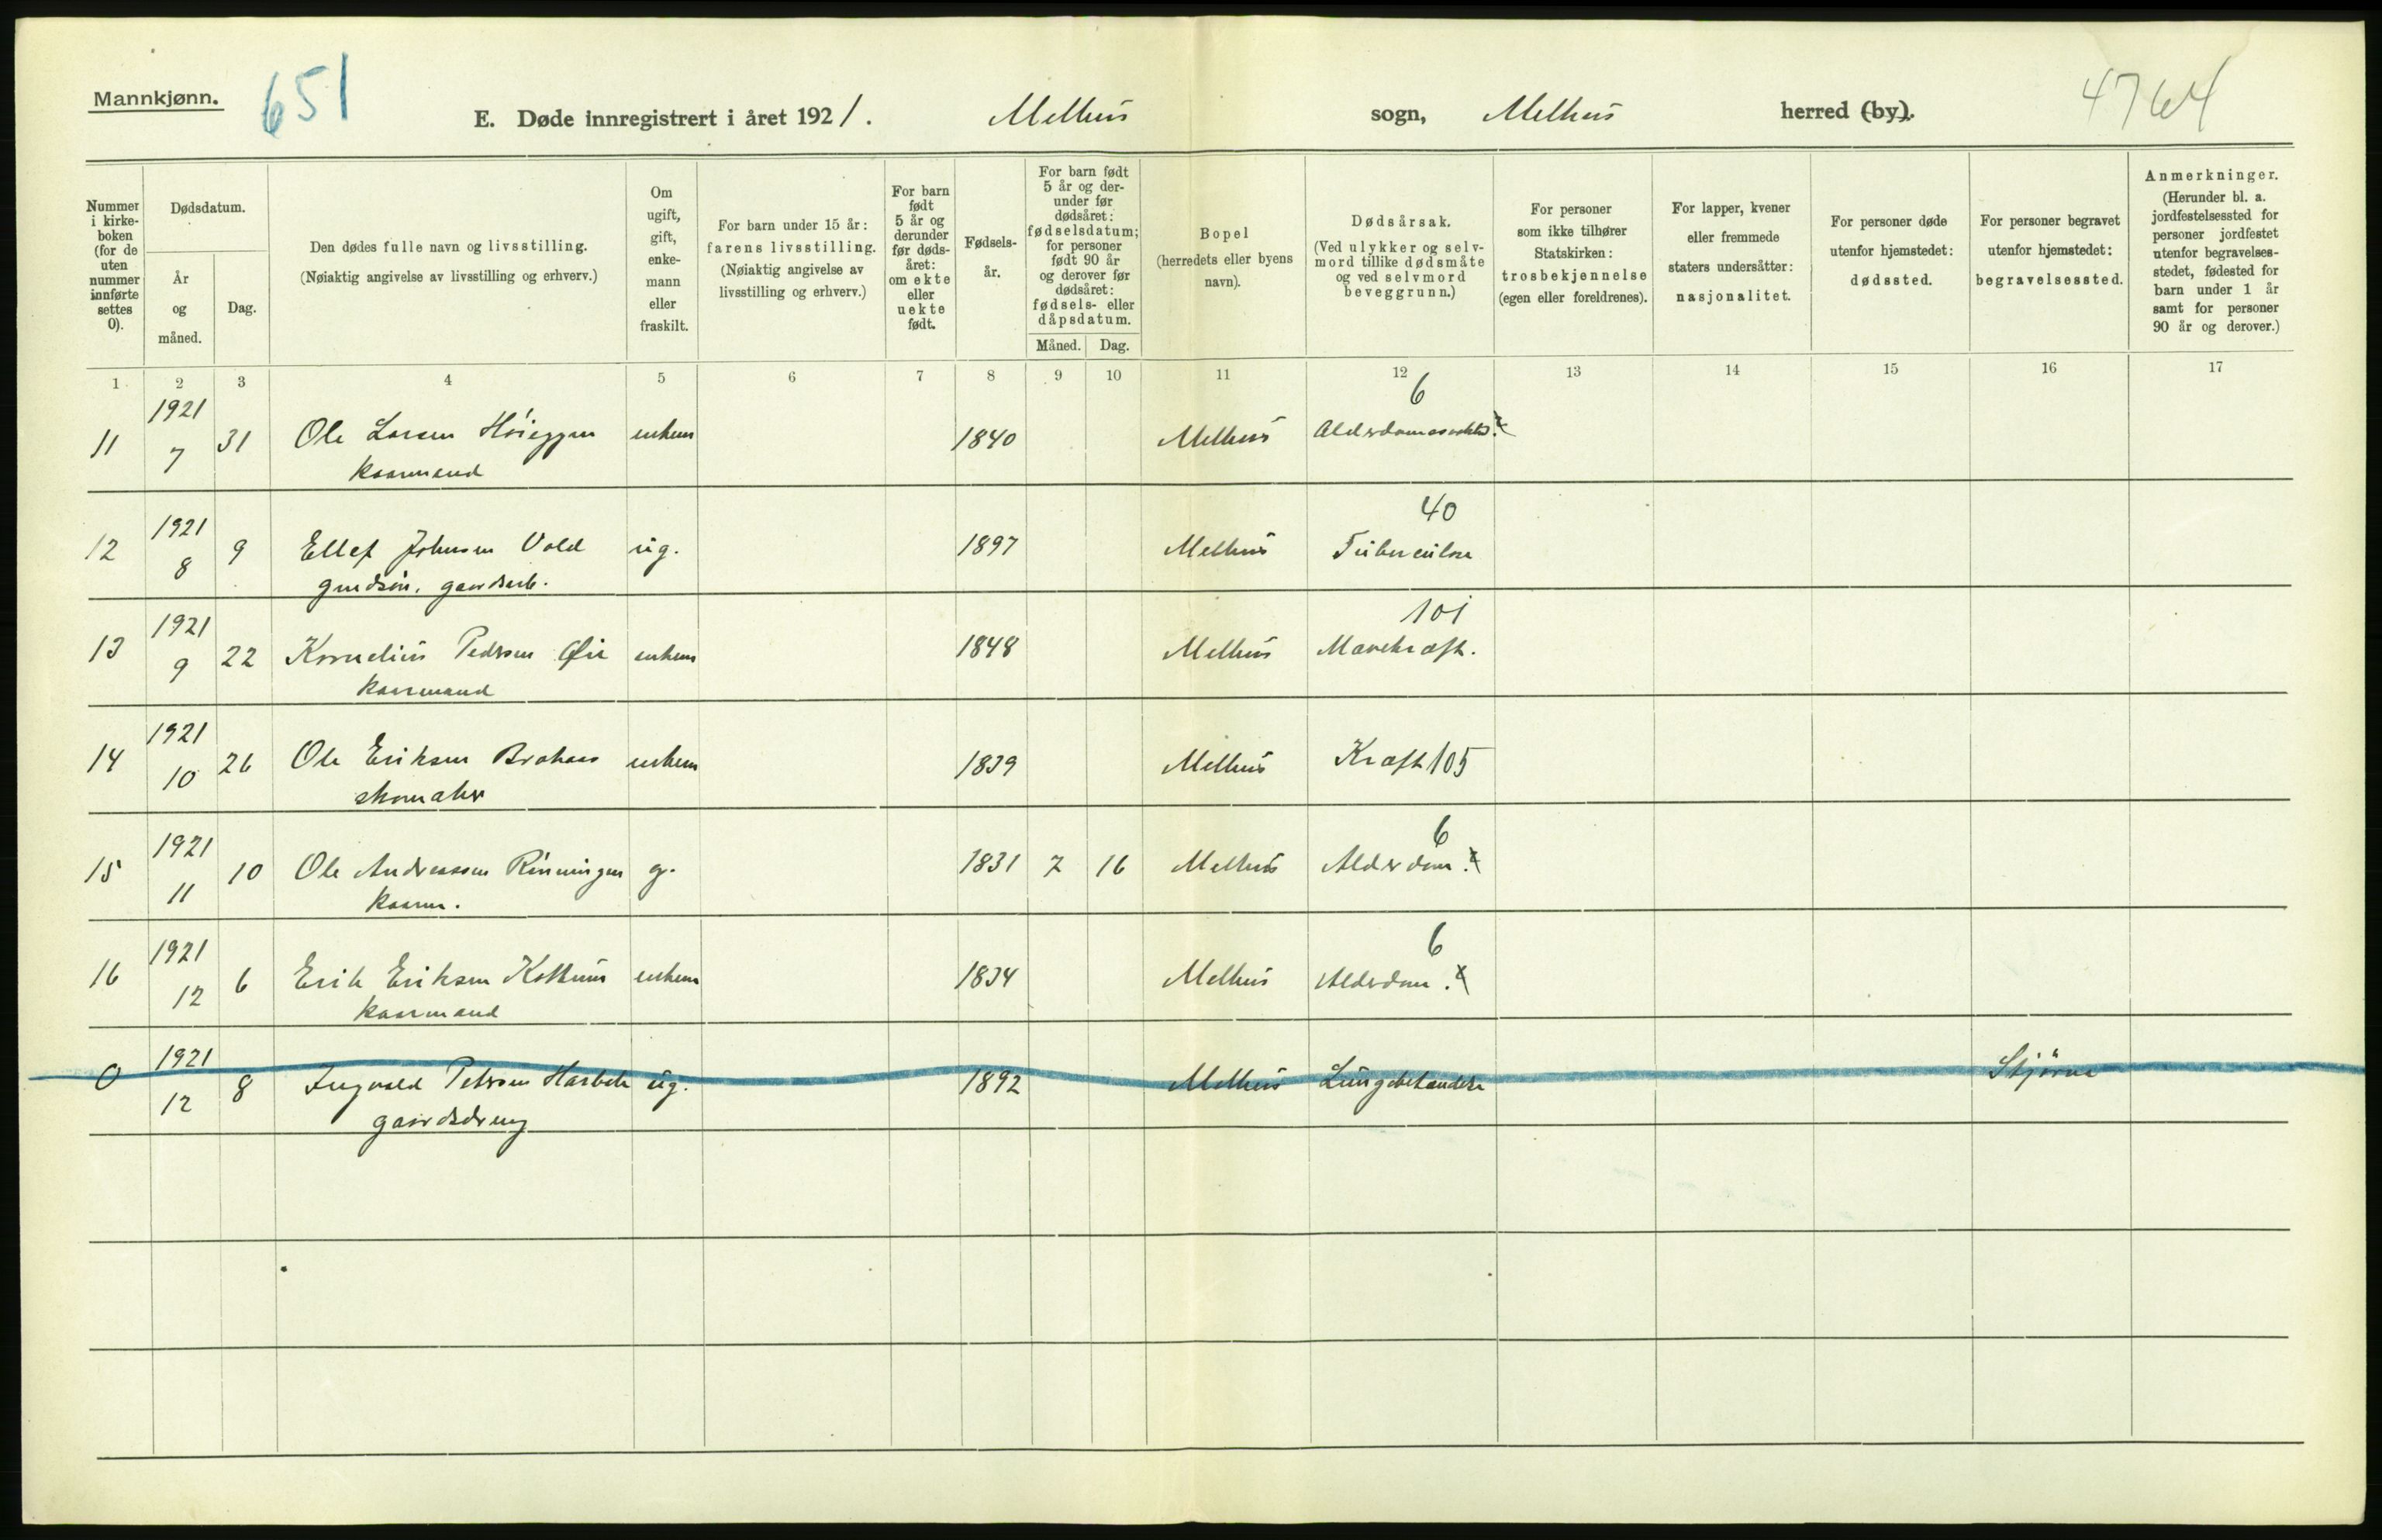 Mannkjønn.
651
E. Døde innregistrert i året 1921.
Melhus
sogn,
Melhus
herred (by).
4764
Nummer i kirke-boken (for de uten nummer innførte settes 0).
Dødsdatum.
År og måned.
Dag.
Den dødes fulle navn og livsstilling.
(Nøiaktig angivelse av livsstilling og erhverv.)
Om ugift, gift, enke-mann eller fraskilt.
For barn under 15 år: farens livsstilling.
(Nøiaktig angivelse av livsstilling og erhverv.)
For barn født 5 år og derunder før døds-året: om ekte eller uekte født.
Fødsels-år.
For barn født 5 år og der-under før dødsåret: fødselsdatum; for personer født 90 år og derover før dødsåret: fødsels- eller dåpsdatum.
Måned.
Dag.
Bopel
(herredets eller byens navn).
Dødsårsak.
(Ved ulykker og selv-mord tillike dødsmåte og ved selvmord beveggrunn.)
For personer som ikke tilhører Statskirken: trosbekjennelse (egen eller foreldrenes).
For lapper, kvener eller fremmede staters undersåtter: nasjonalitet.
For personer døde utenfor hjemstedet: dødssted.
For personer begravet utenfor hjemstedet: begravelsessted.
Anmerkninger.
(Herunder bl. a. jordfestelsessted for personer jordfestet utenfor begravelses-stedet, fødested for barn under 1 år samt for personer 90 år og derover.)
1 2 3 4 5 6 7 8 9 10 11 12 13 14 15 16 17
1921 6
11 7 31 Ole Larsen Høieggen enkem 1840 Melhus
kaarmand
1921 40
12 8 9 Ellef Johnsen Vold ug. 1897 Melhus Tuberculose
grdsøn, gaardsarb.
1921 101
13 9 22 Kornelius Pedersen Øie enkem 1848 Melhus Mavekræft.
kaarmand
1921
14 10 26 Ole Eriksen enkem 1839 Melhus Kræft 105
skomaker
1921 6
15 11 10 Ole Andreassen Rønningen g. 1831 7 16 Melhus Alderdom.
kaarm.
1921 6
16 12 6 Erik Eriksen enkem 1834 Melhus Alderdom.
kaarmand
1921
0 12 8 Ingvald Petersen ug. 1892 Melhus Stjørna
gaardsdreng